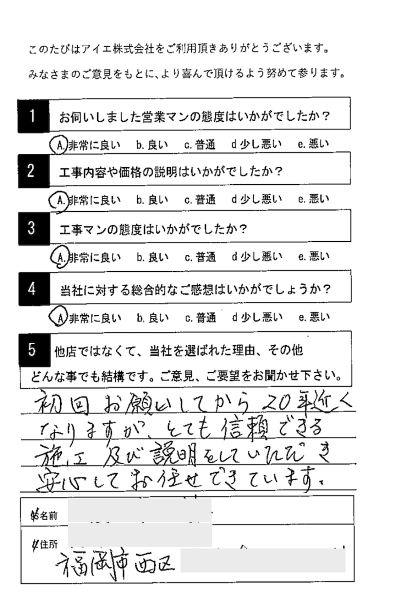 このたびはアイエ株式会社をご利用頂きありがとうございます。
みなさまのご意見をもとに、より喜んで頂けるよう努めて参ります。
1 お伺いしました営業マンの態度はいかがでしたか？
A.非常に良い b.良い c.普通 d少し悪い e.悪い
2 工事内容や価格の説明はいかがでしたか？
A.非常に良い b.良い c.普通 d少し悪い e.悪い
3 工事マンの態度はいかがでしたか？
A.非常に良い b.良い c.普通 d少し悪い e.悪い
4 当社に対する総合的なご感想はいかがでしょうか？
A.非常に良い b.良い c.普通 d少し悪い e.悪い
5 他店ではなくて、当社を選ばれた理由、その他
どんな事でも結構です。ご意見、ご要望をお聞かせ下さい。
初回お願いしてから20年近く
なりますが、とても信頼できる
施工及び説明をしていただき
安心してお任せできています。
お名前
ご住所
福岡市西区